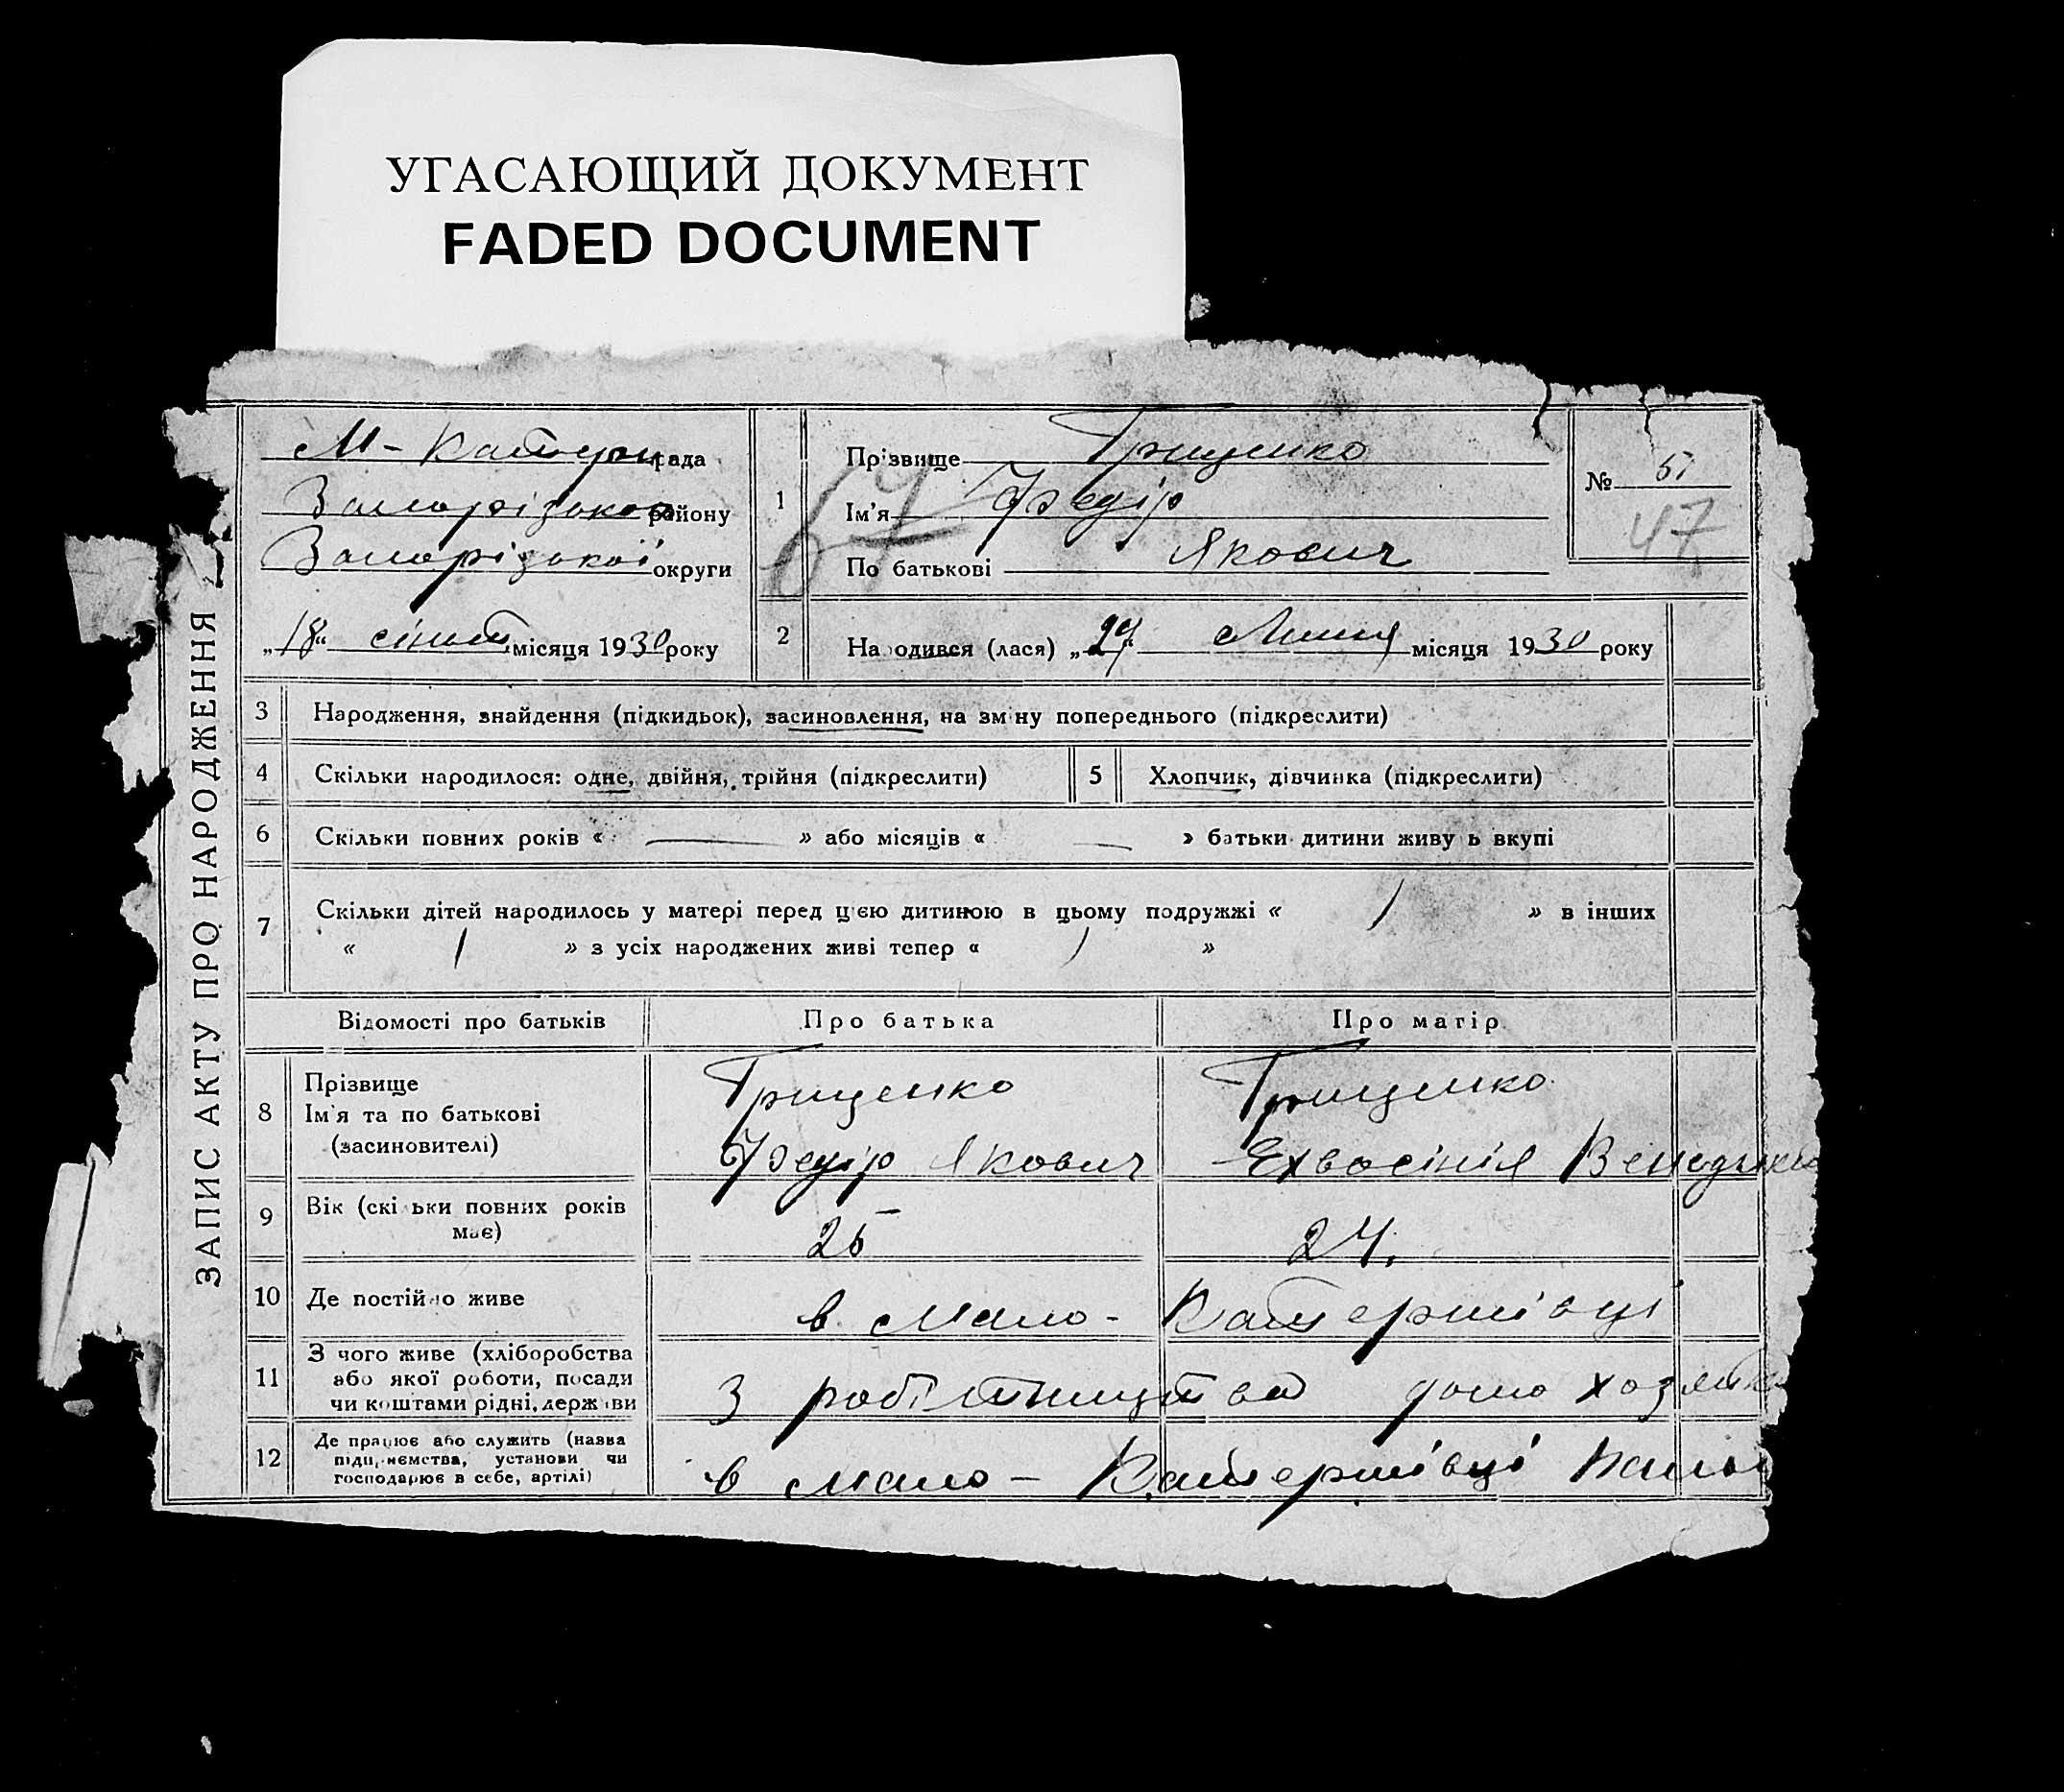 УГАСАЮЩИЙ ДОКУМЕНТ
FADED DOCUMENT
ЗАПИС АКТУ ПРО НАРОДЖЕННЯ
М-Катери рада
Запорізького району
Запорізької округи
„18“ січня місяця 1930 року
1
Прізвище Грищенко
Ім'я Федір
По батькові Якович
№ 51
47
2
Народився (лася) „29“ Липня місяця 1930 року
3 Народження, знайдення (підкидьок), засиновлення, на зміну попереднього (підкреслити)
4 Скільки народилося: одне, двійня, трійня (підкреслити) 5 Хлопчик, дівчинка (підкреслити)
6 Скільки повних років « — » або місяців « — » батьки дитини живуть вкупі
7 Скільки дітей народилось у матері перед цією дитиною в цьому подружжі « / » в інших
« / » з усіх народжених живі тепер « / »
Відомості про батьків Про батька Про матір
8 Прізвище Грищенко Грищенко
Ім'я та по батькові
(засиновителі) Федір Якович Ехвосінія
9 Вік (скільки повних років має) 25 24.
10 Де постійно живе в Мало-Катеринівці
11 З чого живе (хліборобства
або якої роботи, посади
чи коштами рідні, держави З робітництва
12 Де працює або служить (назва
підприємства, установи чи
господарює в себе, артілі) в Мало-Катеринівці